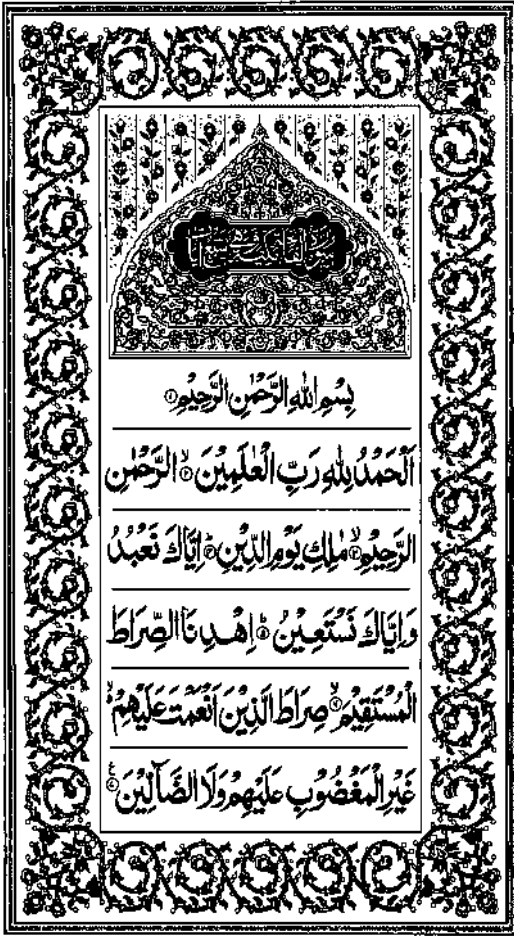 سورة الفاتحة مكية وهي سبع آيات
بِسْمِ اللهِ الرَّحْمٰنِ الرَّحِيْمِ ۝۱
اَلْحَمْدُ لِلّٰهِ رَبِّ الْعٰلَمِيْنَ ۙ۝۲ الرَّحْمٰنِ
الرَّحِيْمِ ۙ۝۳ مٰلِكِ يَوْمِ الدِّيْنِ ؕ۝۴ اِيَّاكَ نَعْبُدُ
وَاِيَّاكَ نَسْتَعِيْنُ ؕ۝۵ اِهْدِنَا الصِّرَاطَ
الْمُسْتَقِيْمَ ۙ۝۶ صِرَاطَ الَّذِيْنَ اَنْعَمْتَ عَلَيْهِمْ ۙ
غَيْرِ الْمَغْضُوْبِ عَلَيْهِمْ وَلَا الضَّآلِّيْنَ ۝۷ۧ